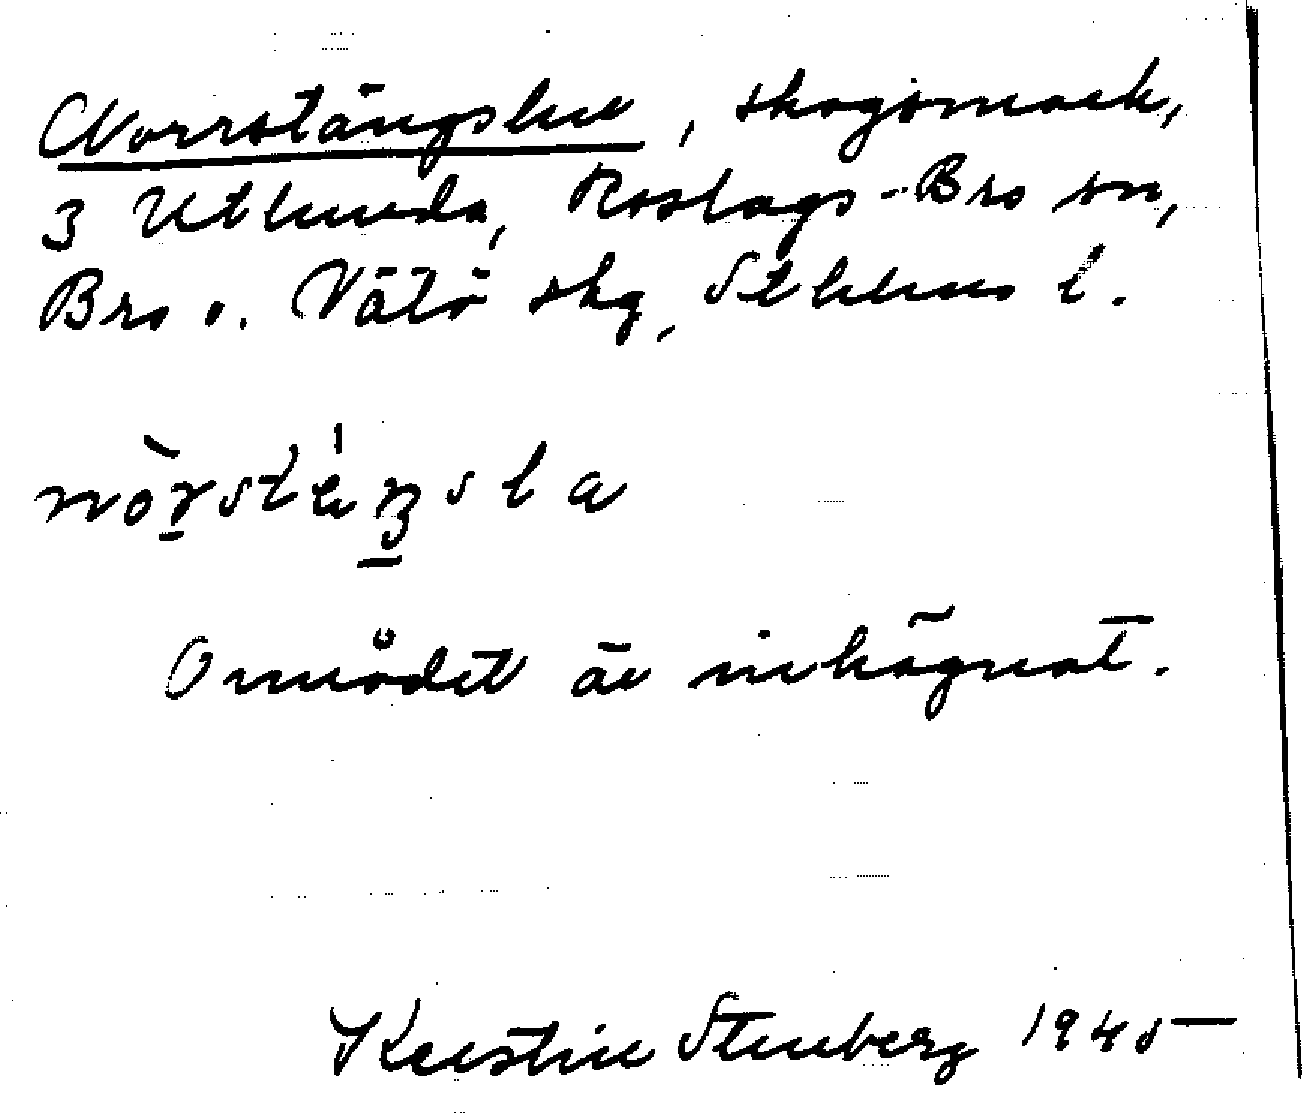 Norrstängslen, skogsmark,
3 Utlunda, Roslags-Bro sn,
Bro o. Vätö skg, Sthlms l.
Området är inhägnat.
Kerstin Stenberg 1945